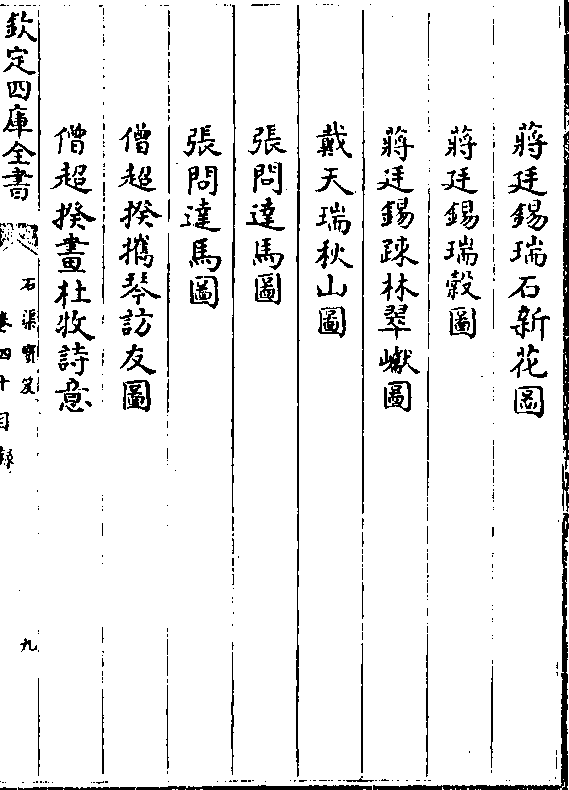 蔣廷錫瑞石新花圖
蔣廷錫瑞穀圖
蔣廷錫疎林翠巘圖
戴天瑞秋山圖
張問達馬圖
張問達馬圖
僧超揆攜琴訪友圖
僧超揆畫杜牧詩意
欽定四庫全書
石渠寶笈
卷四十目錄
九